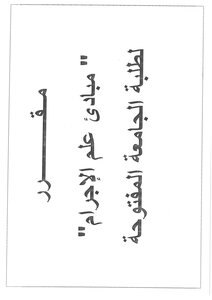 مقـــــــرر
"مبادئ علم الإجرام"
لطلبة الجامعة المفتوحة